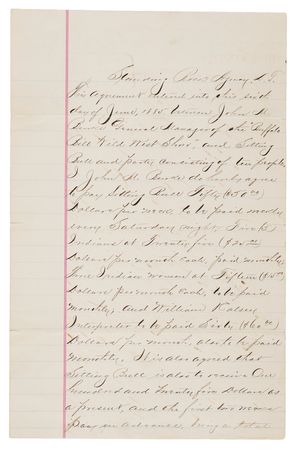 Standing Rock Agency D.T.
This Agreement entered into this sixth
day of June, 1885 between John M.
Burke General Manager of the Buffalo
Bill Wild West Show, and Sitting
Bull and party, consisting of ten people,
I John M. Burke do hereby agree
to pay Sitting Bull Fifty ($50
Dollars per week, to be paid weekly
every Saturday night, Five
Indians at Twenty five ($25
Dollars per month each, paid monthly,
Three Indian women at Fifteen ($15
Dollars per month each, to be paid
monthly, and William Halsey
Interpreter to be paid Sixty ($60
Dollars per month, also to be paid
monthly. It is also agreed that
Sitting Bull is also to receive One
hundred and twenty five Dollars as
a present, and the first two weeks
pay in advance, being a total